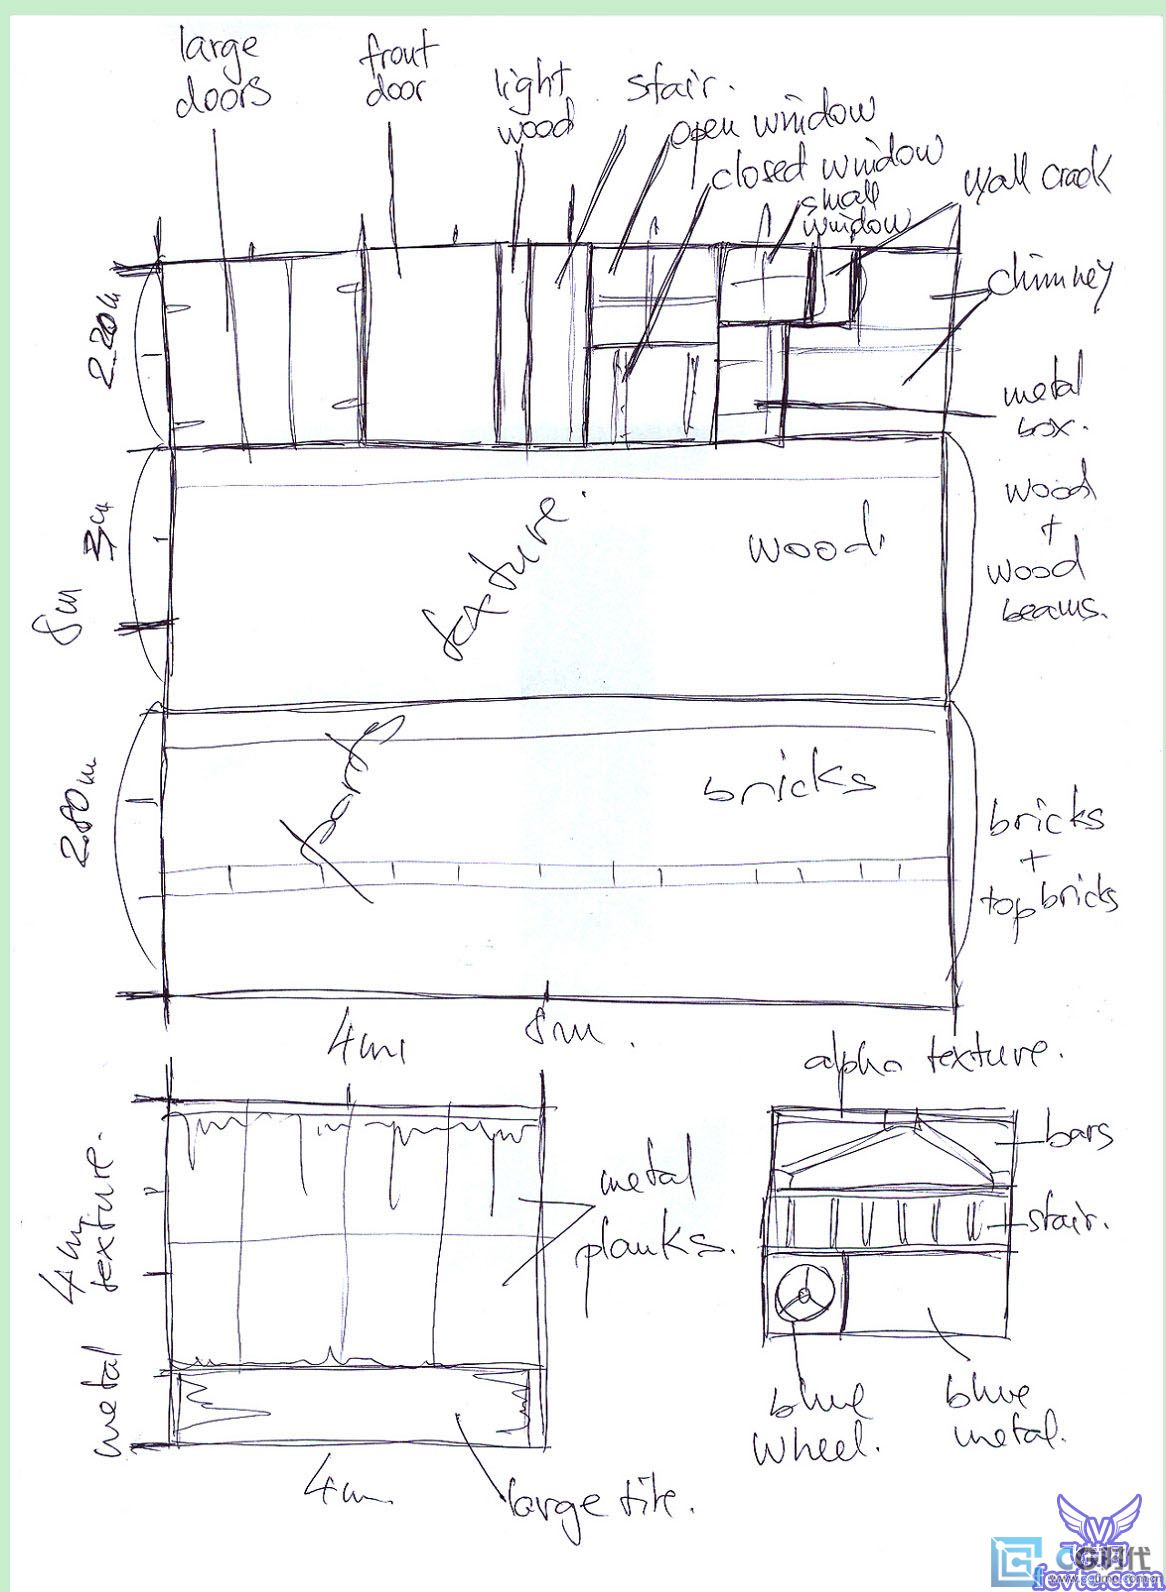 large
doors
front
door
light
wood
stair.
open window
closed window
small
window
wall crack
chimney
metal
box.
2.20m
3m
8m
texture.
wood
wood
+
wood
beams.
2.80m
bricks
bricks
+
top bricks
4m
8m.
alpha texture.
bars
stair.
blue
wheel.
blue
metal.
metal
planks.
4m
texture.
metal
4m
large tile.
CG时代
www.cgtimo.com.cn
fevte.com